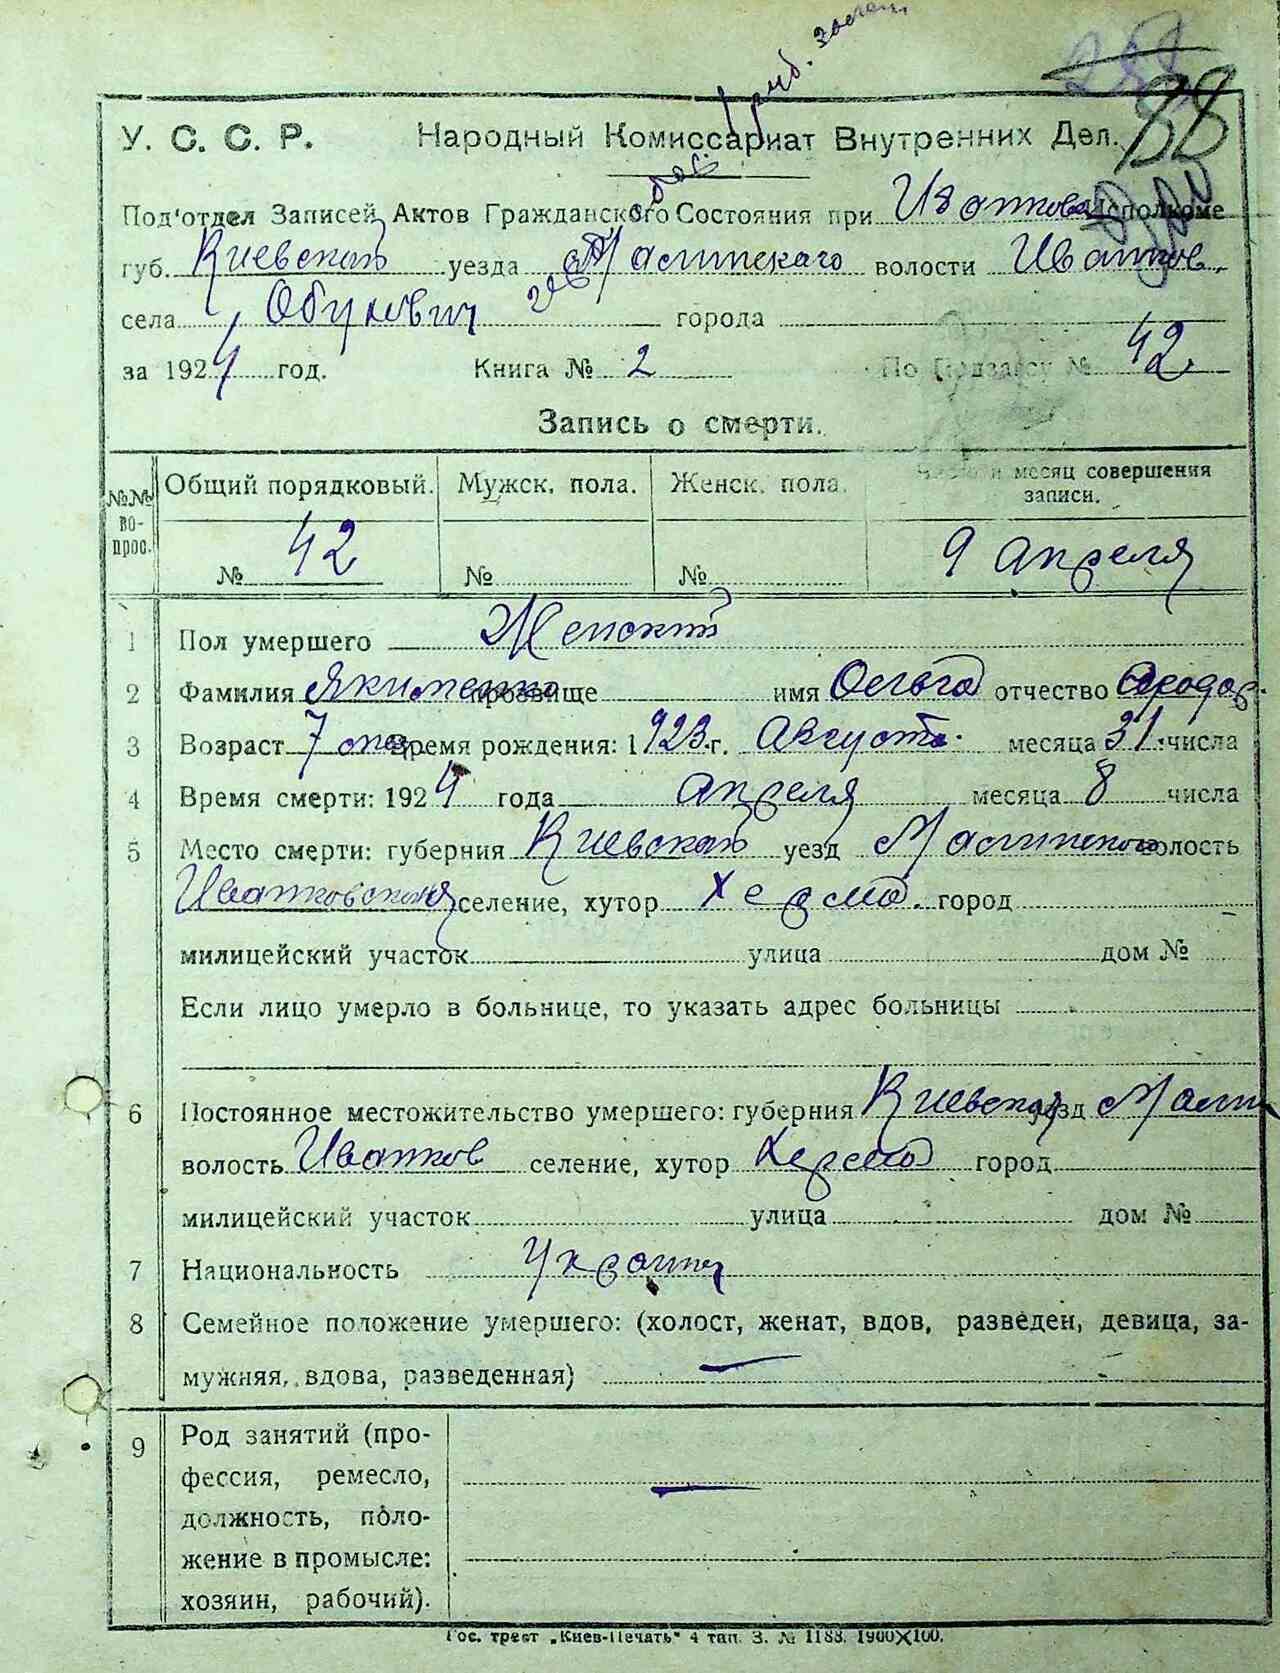 288
88
У. С. С. Р. Народный Комиссариат Внутренних Дел.
Под'отдел Записей Актов Гражданского Состояния при Иванков Исполкоме
губ. Киевской уезда Малинского волости Иванков.
села Обухович города
за 1924 год. Книга № 2 По Подзагсу № 42.
Запись о смерти.
№№ во-прос. Общий порядковый. Мужск. пола. Женск. пола. Число и месяц совершения записи.
№ 42 № № 9 апреля
1 Пол умершего Женский
2 Фамилия Якименко прозвище имя Ольга отчество Феодор.
3 Возраст 7 мес. Время рождения: 1923 г. Август. месяца 31. числа
4 Время смерти: 1924 года апреля месяца 8 числа
5 Место смерти: губерния Киевской уезд Малинского волость
Иванковская селение, хутор Херсма. город
милицейский участок улица дом №
Если лицо умерло в больнице, то указать адрес больницы
6 Постоянное местожительство умершего: губерния Киевской уезд Малин
волость Иванков селение, хутор Херсма город
милицейский участок улица дом №
7 Национальность Украин
8 Семейное положение умершего: (холост, женат, вдов, разведен, девица, за-
мужняя, вдова, разведенная) —
9 Род занятий (про-
фессия, ремесло, —
должность, поло-
жение в промысле:
хозяин, рабочий).
Гос. трест „Киев-Печать" 4 тип. З. № 1188. 1900X100.